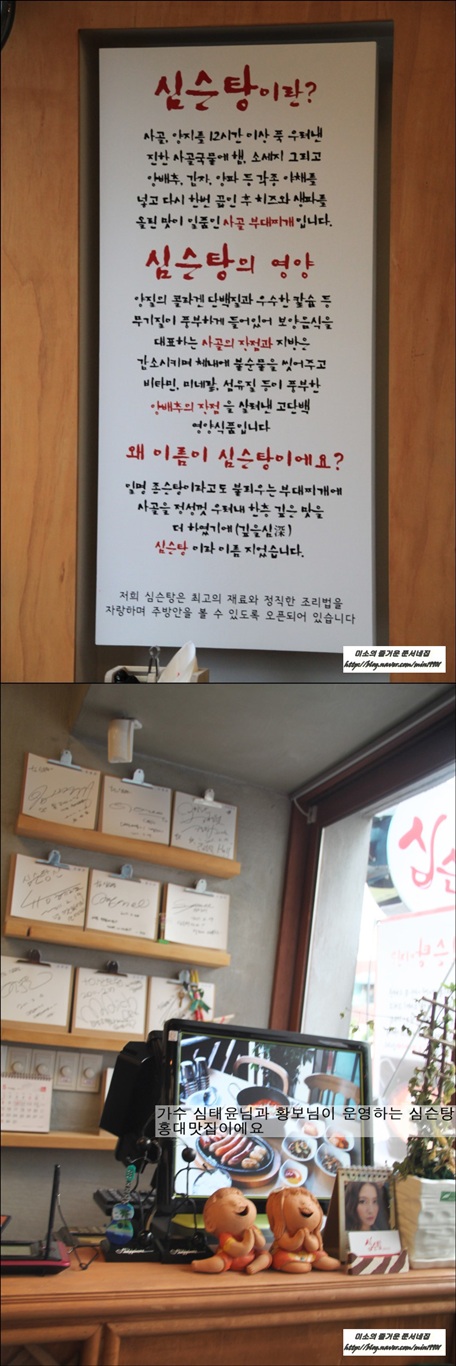 심슨탕이란?
사골, 양지를 12시간 이상 푹 우려낸
진한 사골국물에 햄, 소세지 그리고
양배추, 감자, 양파 등 각종 야채를
넣고 다시 한번 끓인 후 치즈와 생파를
올린 맛이 일품인 사골 부대찌개입니다.
심슨탕의 영양
양질의 콜라겐 단백질과 우수한 칼슘 등
무기질이 풍부하게 들어있어 보양음식을
대표하는 사골의 장점과 지방은
감소시키며 체내에 불순물을 씻어주고
비타민, 미네랄, 섬유질 등이 풍부한
양배추의 장점을 살려낸 고단백
영양식품입니다
왜 이름이 심슨탕이에요?
일명 존슨탕이라고도 불리우는 부대찌개에
사골을 정성껏 우려내 한층 깊은 맛을
더 하였기에 (깊을심深)
심슨탕 이라 이름 지었습니다.
저희 심슨탕은 최고의 재료와 정직한 조리법을
자랑하며 주방안을 볼 수 있도록 오픈되어 있습니다
미소의 즐거운 문서네집
http://blog.naver.com/mini1901
심슨
가수 심태윤님과 황보님이 운영하는 심슨탕
홍대맛집이에요
미소의 즐거운 문서네집
http://blog.naver.com/mini1901